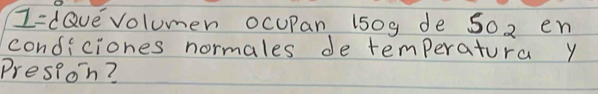 1=¿Qué volumen ocupan 150g de SO2 en
condiciones normales de temperatura y
Presión?